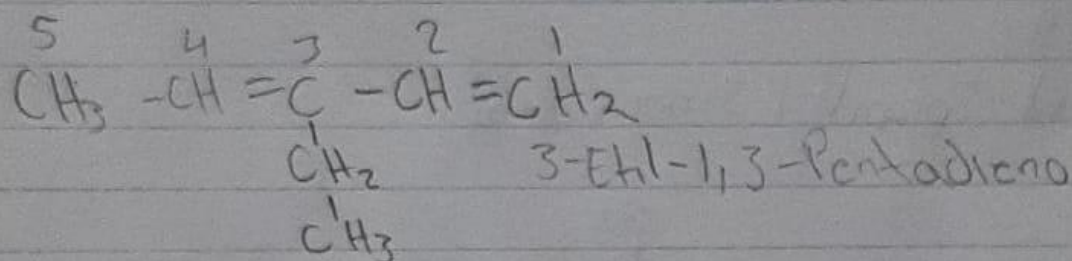 5 4 3 2 1
CH3 -CH =C -CH =CH2
CH2 3-Etil-1,3-Pentadieno
CH3